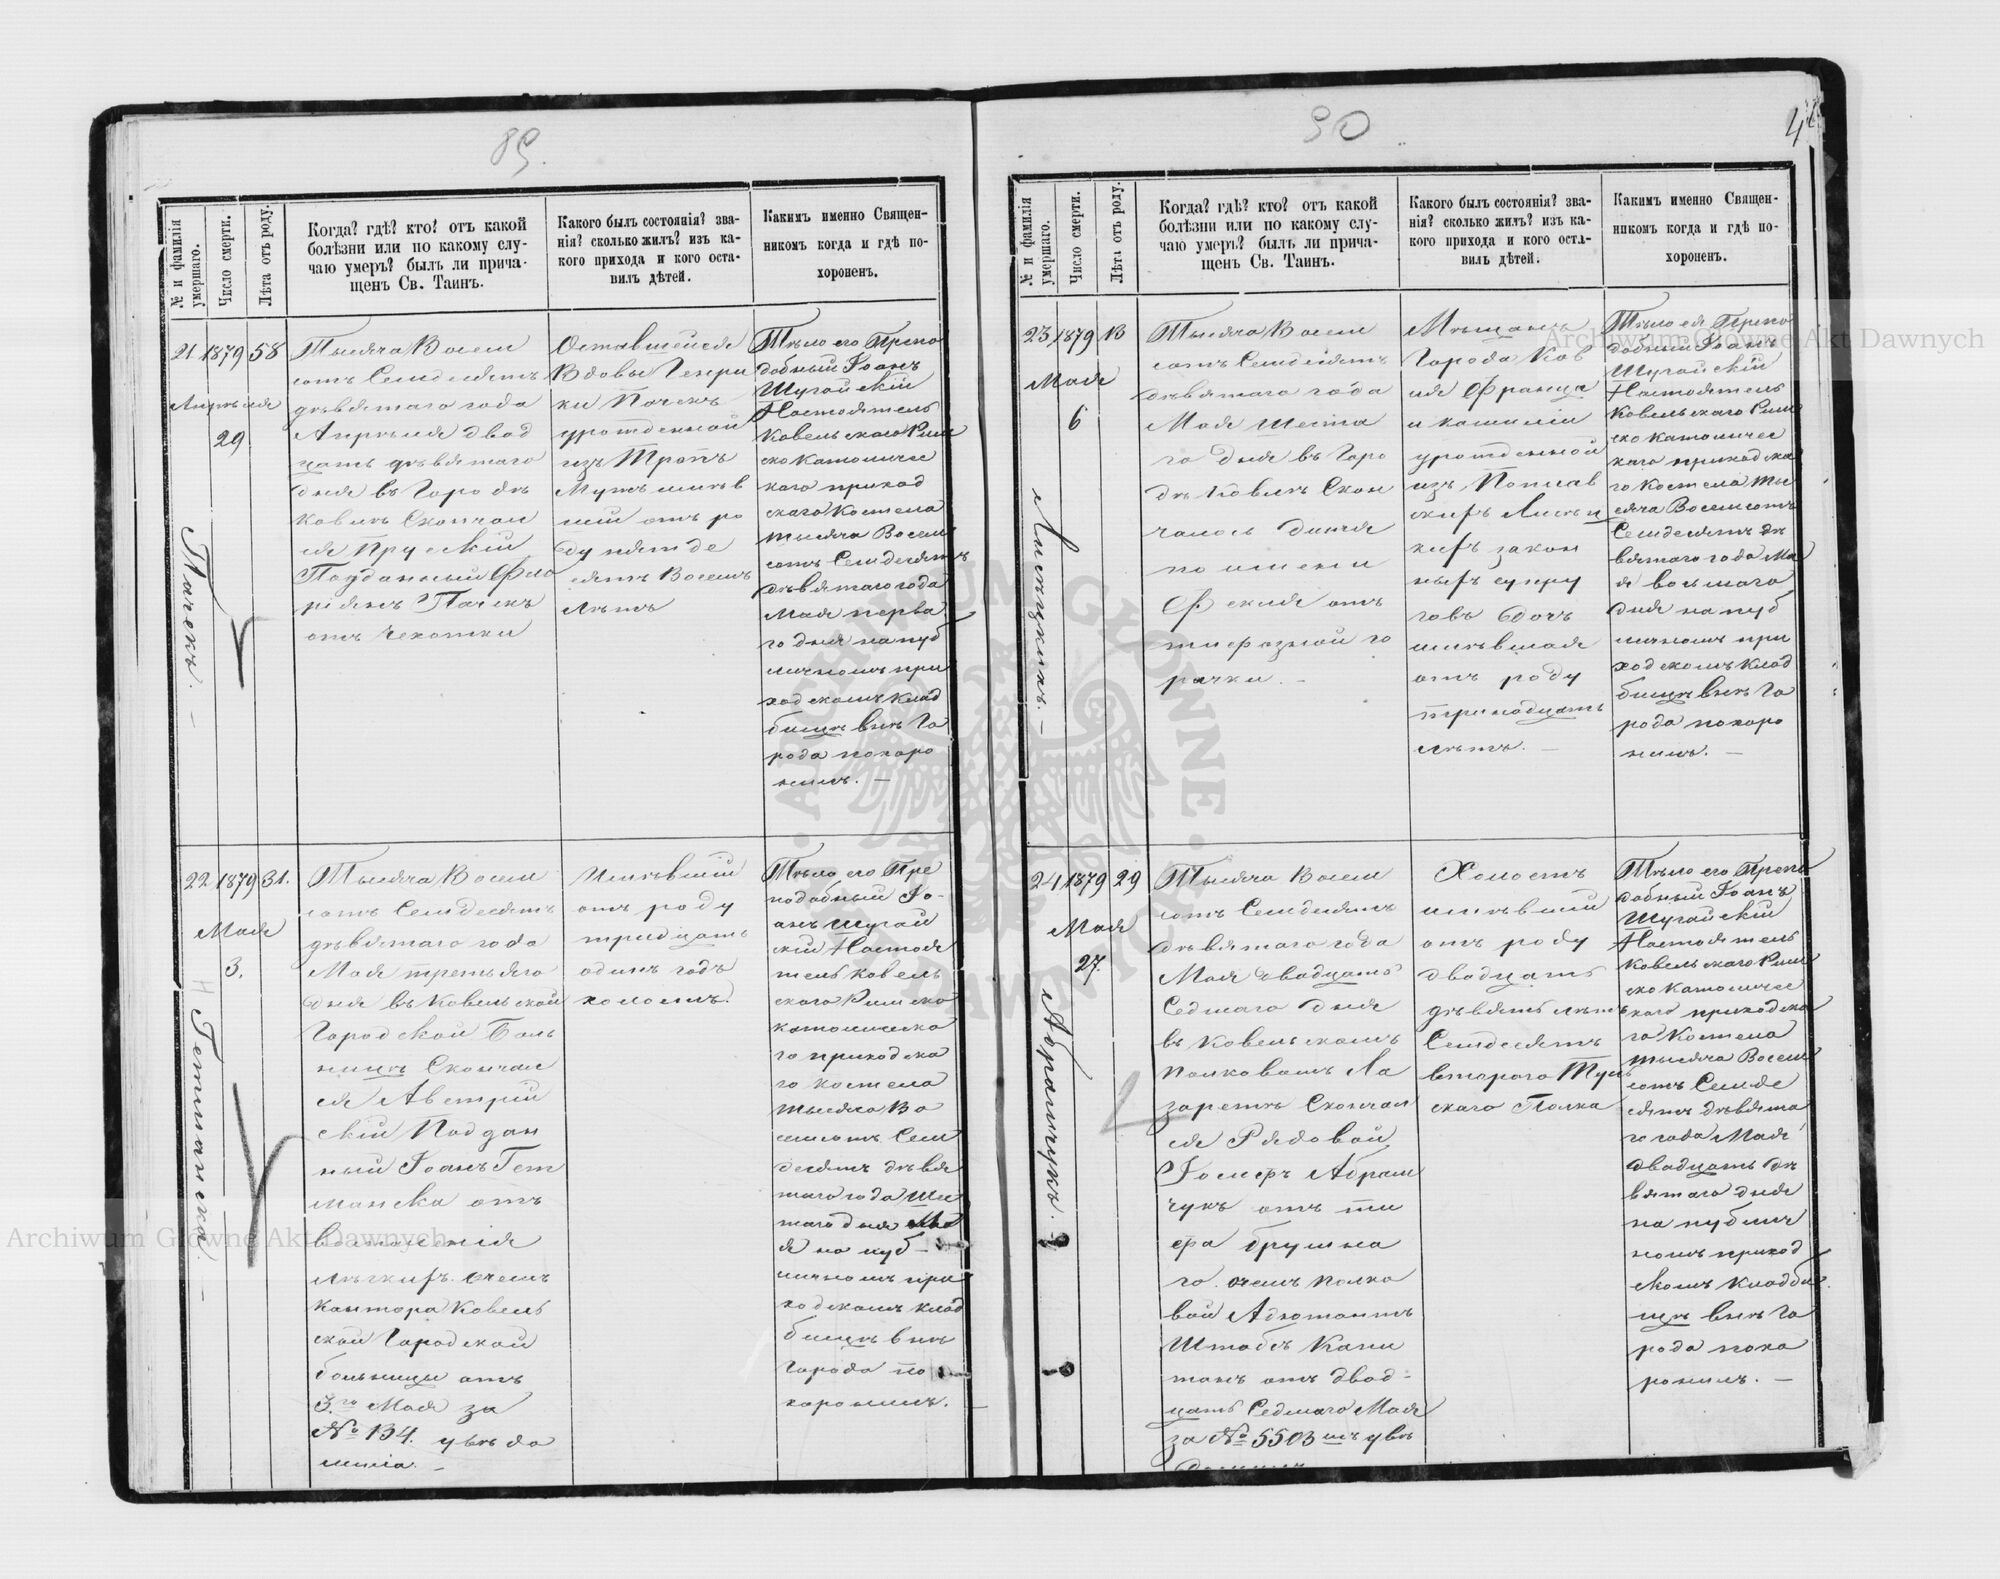 89.
№ и фамилія умершаго.
Число смерти.
Лѣта отъ роду.
Когда? гдѣ? кто? отъ какой
болѣзни или по какому слу-
чаю умеръ? былъ ли прича-
щенъ Св. Таинъ.
Какого былъ состоянія? зва-
нія? сколько жилъ? изъ ка-
кого прихода и кого оста-
вилъ дѣтей.
Каким именно Священ-
никомъ когда и гдѣ по-
хороненъ.
21 1879 58
Апрѣля
29
Пачекъ. —
Тысяча Восем
сотъ Семдесятъ
дѣвятаго года
Апрѣля двад
цать дѣвятаго
дня въ Городѣ
Ковлѣ Скончал
ся Прускій
Подданный Фло
ріянъ Пачекъ
отъ чехотки
Оставшейся
Вдовы Генри
ки Пачекъ
урожденной
изъ
Мужъ имѣв
шій отъ ро
ду пятде
сятъ Восемъ
лѣтъ
Тѣло его Препо
добный Іоанъ
Шугайскій
Настоятель
Ковельскаго Рим
ско Католичес
каго приход
скаго Костела
тысяча Восем
сотъ Семдесятъ
дѣвятаго года
Мая перва
го дня на пуб
личномъ при
ходскомъ клад
бищѣ внѣ Го
рода похоро
нилъ. —
22 1879 31.
Мая
3.
Гетманска. —
Тысяча Восем
сотъ Семдесятъ
дѣвятаго года
Мая третьяго
дня въ Ковельской
Городской Боль
ницѣ Скончал
ся Австрій
скій Поддан
ный Іоанъ Гет
манска отъ
воспаленія
лѣгкихъ. о чемъ
Контора Ковель
ской Городской
больницы отъ
3.го Мая за
№ 134. увѣдо
мила. —
Имѣвшій
отъ роду
тридцать
одинъ годъ
холостъ.
Тѣло его Пре
подобный Іо-
анъ Шугай
скій Настоя
тель Ковель
скаго Римско
католическа
го приходска
го костела
тысяча Во
семсотъ Сем
десятъ дѣвя
таго года Шес
таго дня Ма
я на пуб-
личномъ при
ходскомъ клад
бищѣ внѣ
Города по
хоронилъ. —
90
№ и фамилія умершаго.
Число смерти.
Лѣта отъ роду.
Когда? гдѣ? кто? отъ какой
болѣзни или по какому слу-
чаю умеръ? былъ ли прича-
щенъ Св. Таинъ.
Какого былъ состоянія? зва-
нія? сколько жилъ? изъ ка-
кого прихода и кого оста-
вилъ дѣтей.
Каким именно Священ-
никомъ когда и гдѣ по-
хороненъ.
23 1879 13
Мая
6
Тысяча Восем
сотъ Семдесятъ
дѣвятаго года
Мая шеста
го дня въ Горо
дѣ Ковлѣ Скон
чалась
по имени
отъ
тифозной го
рячки. —
Мѣщанъ
Города Ков
ля Франца
и
урожденной
изъ Поплав
скихъ Лисѣц
кихъ закон
ныхъ супру
говъ дочь
имѣвшая
отъ роду
тринадцать
лѣтъ. —
Тѣло ея Препо
добный Іоанъ
Шугайскій
Настоятель
Ковельскаго Рим
ско Католичес
каго приходска
го Костела ты
сяча Восемсотъ
Семдесятъ дѣ
вятаго года Ма
я восьмаго
дня на пуб
личномъ при
ходскомъ клад
бищѣ внѣ Го
рода похоро
нилъ. —
24 1879 29
Мая
27.
Абрамчукъ.
Тысяча Восем
сотъ Семдесятъ
дѣвятаго года
Мая двадцать
Седмаго дня
въ Ковельскомъ
полковомъ Ла
заретѣ Скончал
ся Рядовой
Іосифъ Абрам
чукъ отъ ти
фа брушна
го. о чемъ полко
вой Адютантъ
Штабсъ Капи
танъ отъ двад-
цать Седмаго Мая
за № 5503 мъ увѣ
Холостъ
имѣвший
отъ роду
двадцать
дѣвять лѣтъ
Семдесятъ
втораго Туль
скаго Полка
Тѣло его Препо
добный Іоанъ
Шугайскій
Настоятель
Ковельскаго Рим
ско Католичес
каго приходска
го Костела
тысяча Восем
сотъ Семде
сятъ дѣвята
го года Мая
двадцать дѣ
вятаго дня
на публич
номъ приход
скомъ кладби
щѣ внѣ Го
рода похо
ронилъ. —
Archiwum Główne Akt Dawnych
Archiwum Główne Akt Dawnych